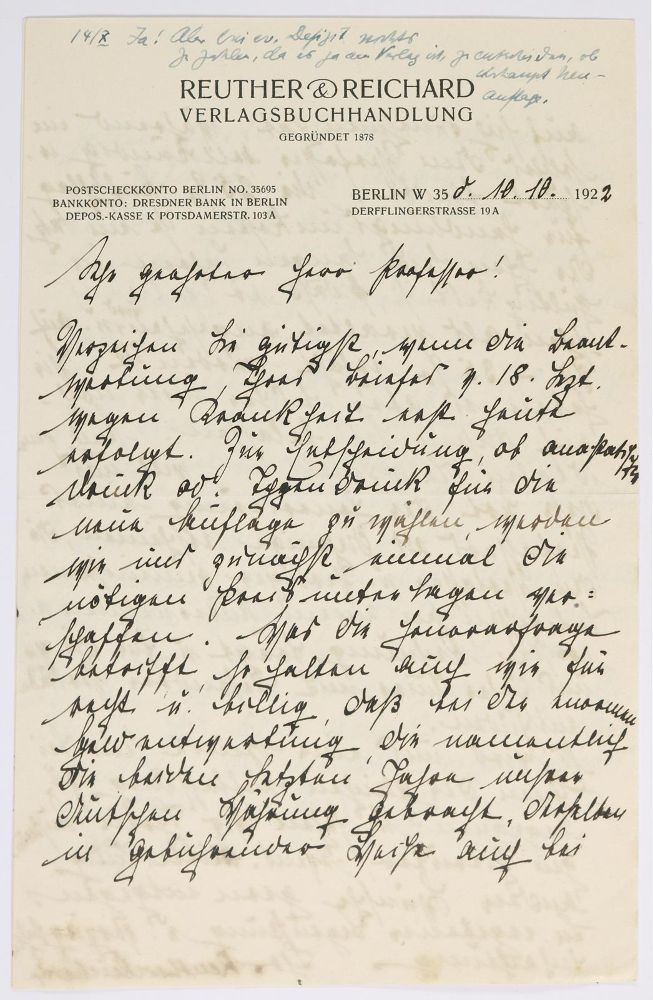 14/X Ja! Aber bei ev. Defizit nichts
zu zahlen, da es ja am Verlag ist, zu entscheiden, ob
überhaupt Neu-
auflage.
REUTHER & REICHARD
VERLAGSBUCHHANDLUNG
GEGRÜNDET 1878
POSTSCHECKKONTO BERLIN NO. 35695
BANKKONTO: DRESDNER BANK IN BERLIN
DEPOS.-KASSE K POTSDAMERSTR. 103 A
BERLIN W 35 d. 10. 10. 1922
DERFFLINGERSTRASSE 19 A
Sehr geehrter Herr Professor!
Verzeihen Sie gütigst, wenn die Beant-
wortung Ihres Briefes v. 18. Spt.
wegen Krankheit erst heute
erfolgt. Zur Entscheidung, ob anastat.
druck od. Typendruck für die
neue Auflage zu wählen, werden
wir uns zunächst einmal die
nötigen Preisunterlagen ver=
schaffen. Was die Honorarfrage
betrifft, so halten auch wir für
recht u. billig, daß bei der enormen
Geldentwertung, die namentlich
die beiden letzten Jahre unsrer
deutschen Währung gebracht, derselben
in gebührender Weise auch bei